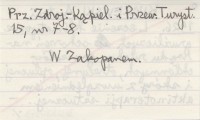 Prz. Zdroj.-Kąpiel. i Przew. Turyst.
15, nr 7-8.
W Zakopanem.